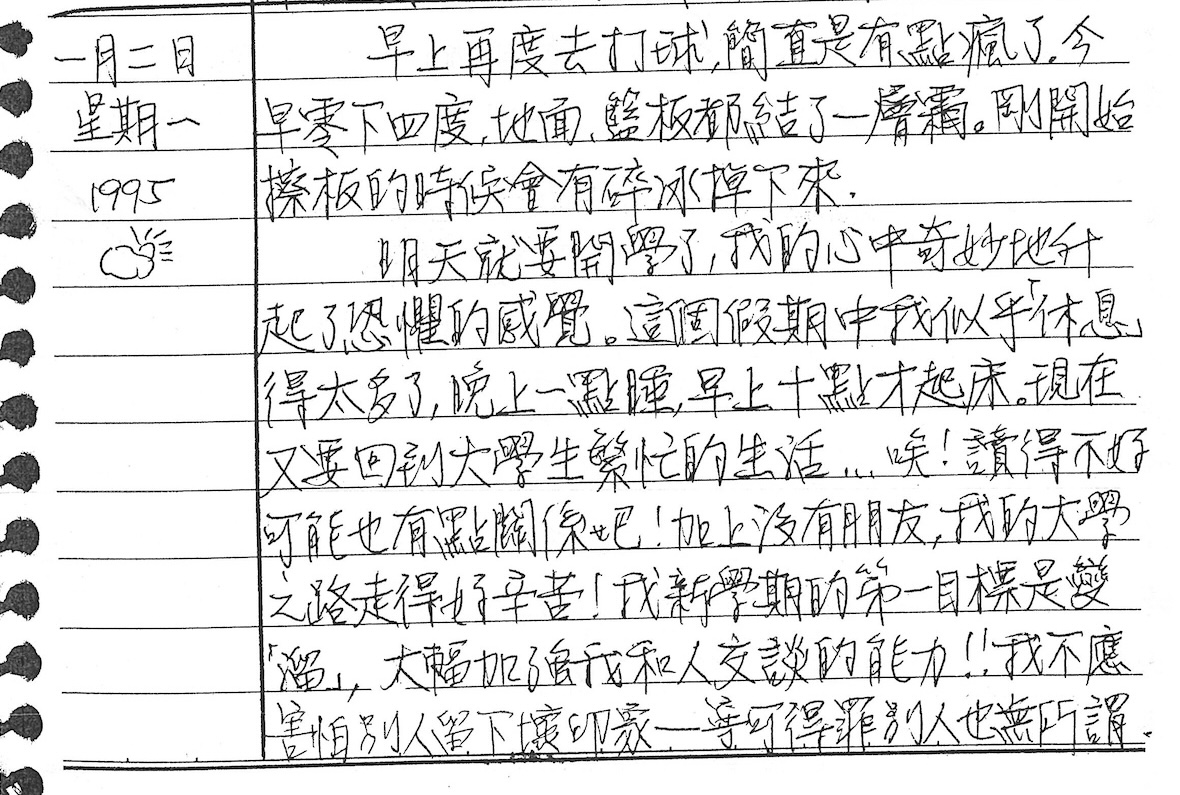 一月二日
星期一
1995
早上再度去打球,簡直是有點瘋了.今
早零下四度,地面、籃板都結了一層霜。剛開始
擦板的時候會有碎冰掉下來.
明天就要開學了,我的心中奇妙地升
起了恐懼的感覺。這個假期中我似乎「休息」
得太多了,晚上一點睡,早上十點才起床。現在
又要回到大學生繁忙的生活...唉!讀得不好
可能也有點關係吧!加上沒有朋友,我的大學
之路走得好辛苦!我新學期的第一目標是變
「溜」,大幅加強我和人交談的能力!!我不應
害怕別人留下壞印象一寧可得罪別人也無所謂.